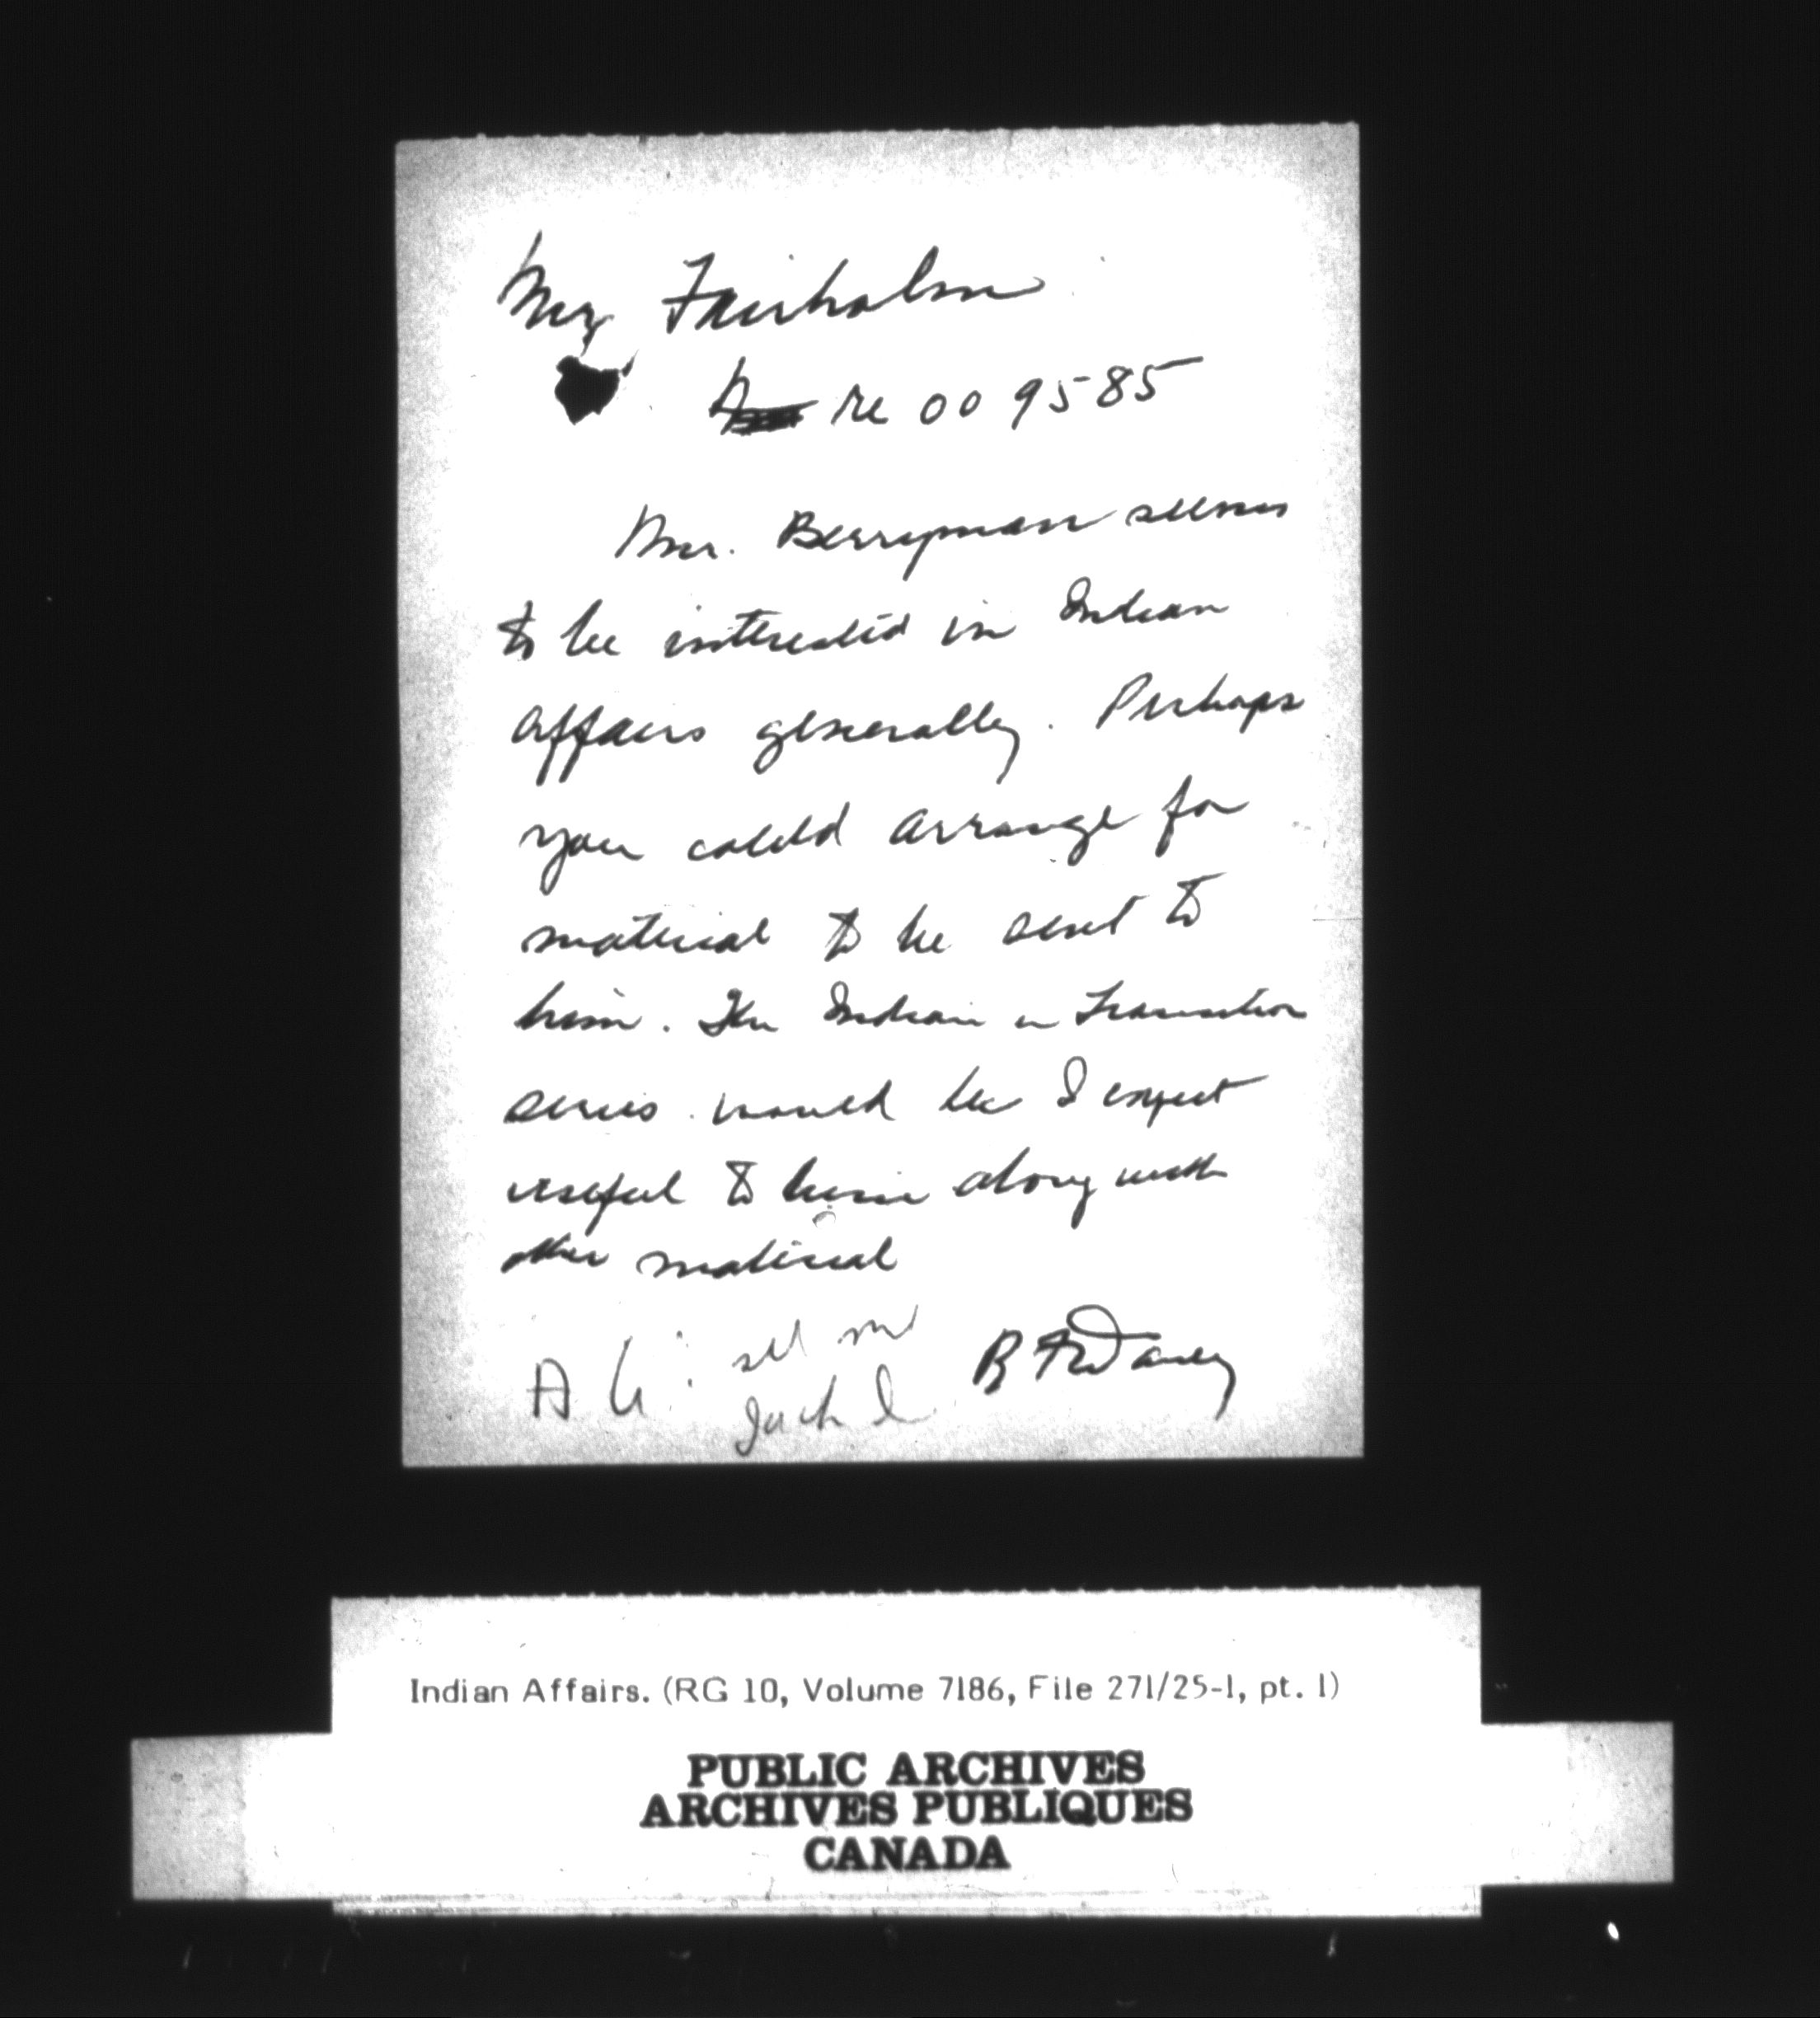 Mr Fairholm
re 009585
Mr. Berryman seems
to be interested in Indian
affairs generally. Perhaps
you could arrange for
material to be sent to
him. The Indian in Transition
series would be I expect
useful to him along with
other material
A G. see me
Indian Affairs. (RG 10, Volume 7186, File 271/25-1, pt. 1)
PUBLIC ARCHIVES
ARCHIVES PUBLIQUES
CANADA